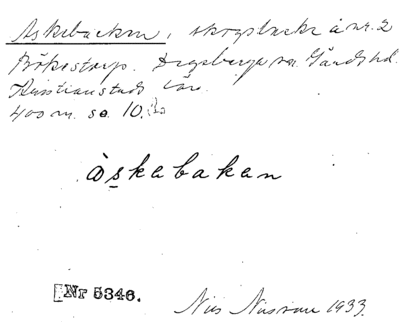 Askebacken, skogsbacke å nr. 2
Bökestorp. Degeberga sn. Gärds hd.
Kristianstads län.
400 m. so. 10.
àskebakan
Nr 5346.
Nils Nilsson 1933.